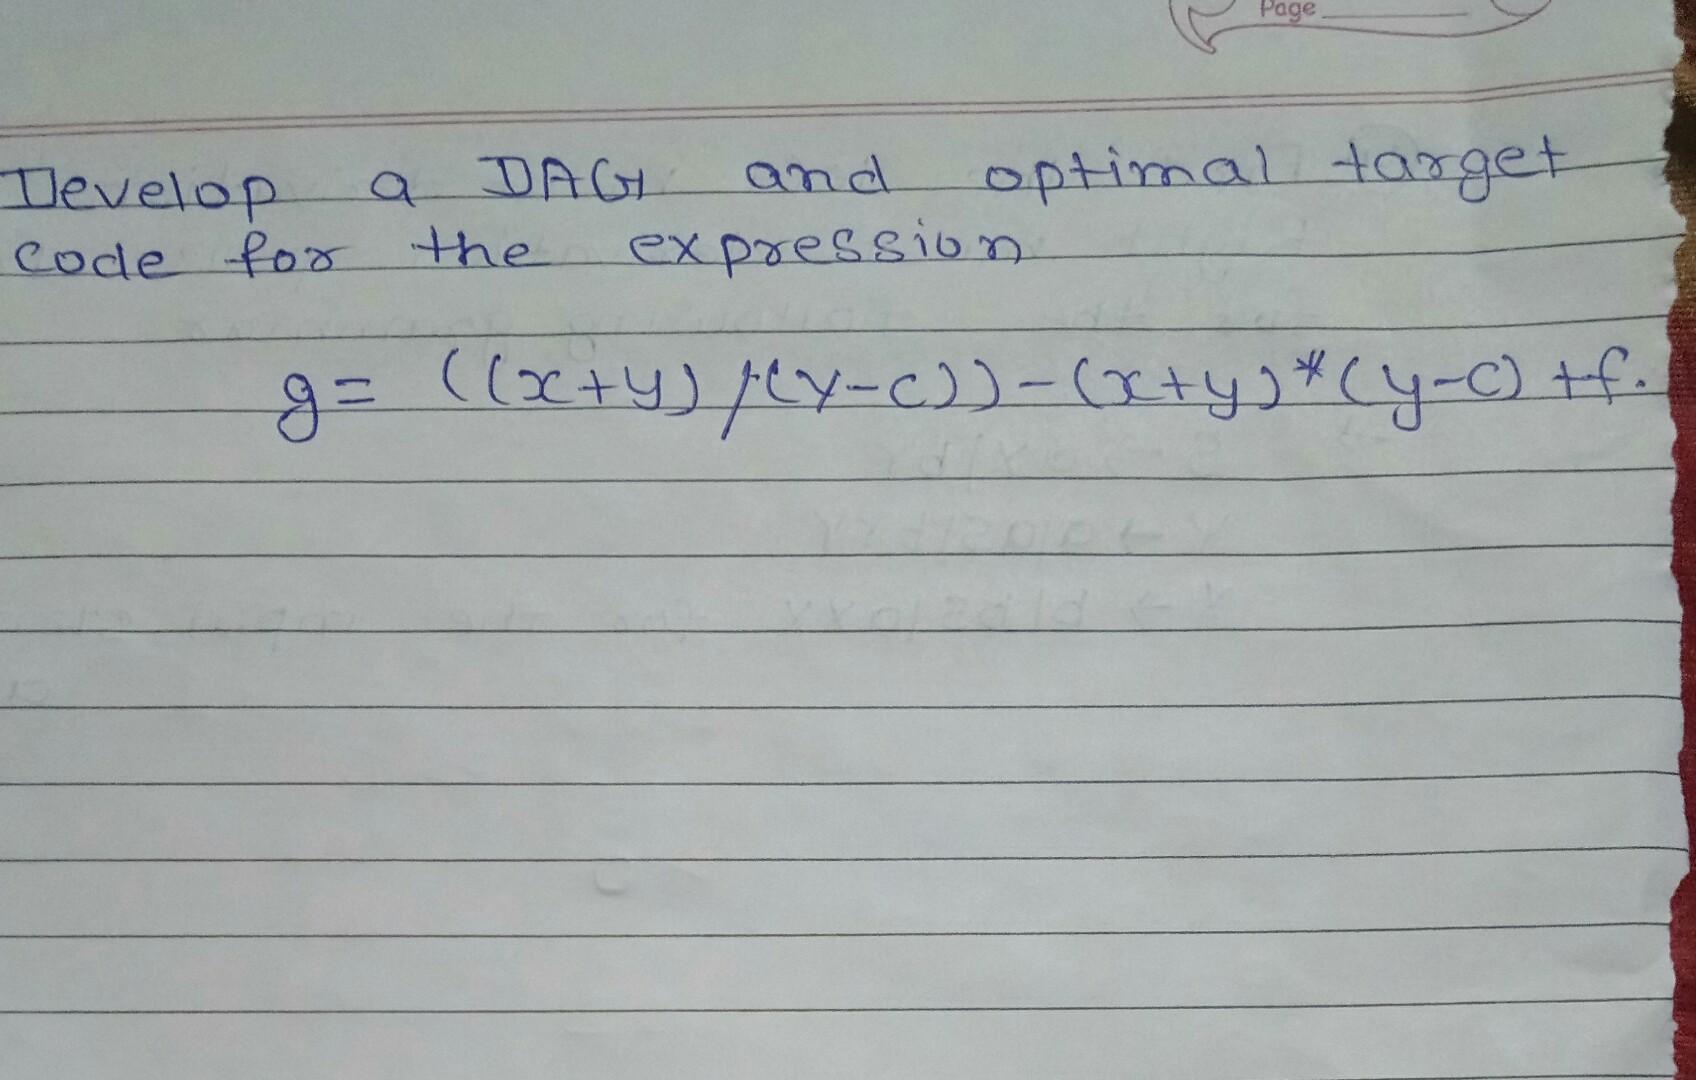 Page
Develop a DAG and optimal target
code for the expression
g= ((x+y) /(y-c)) - (x+y)*(y-c) +f.